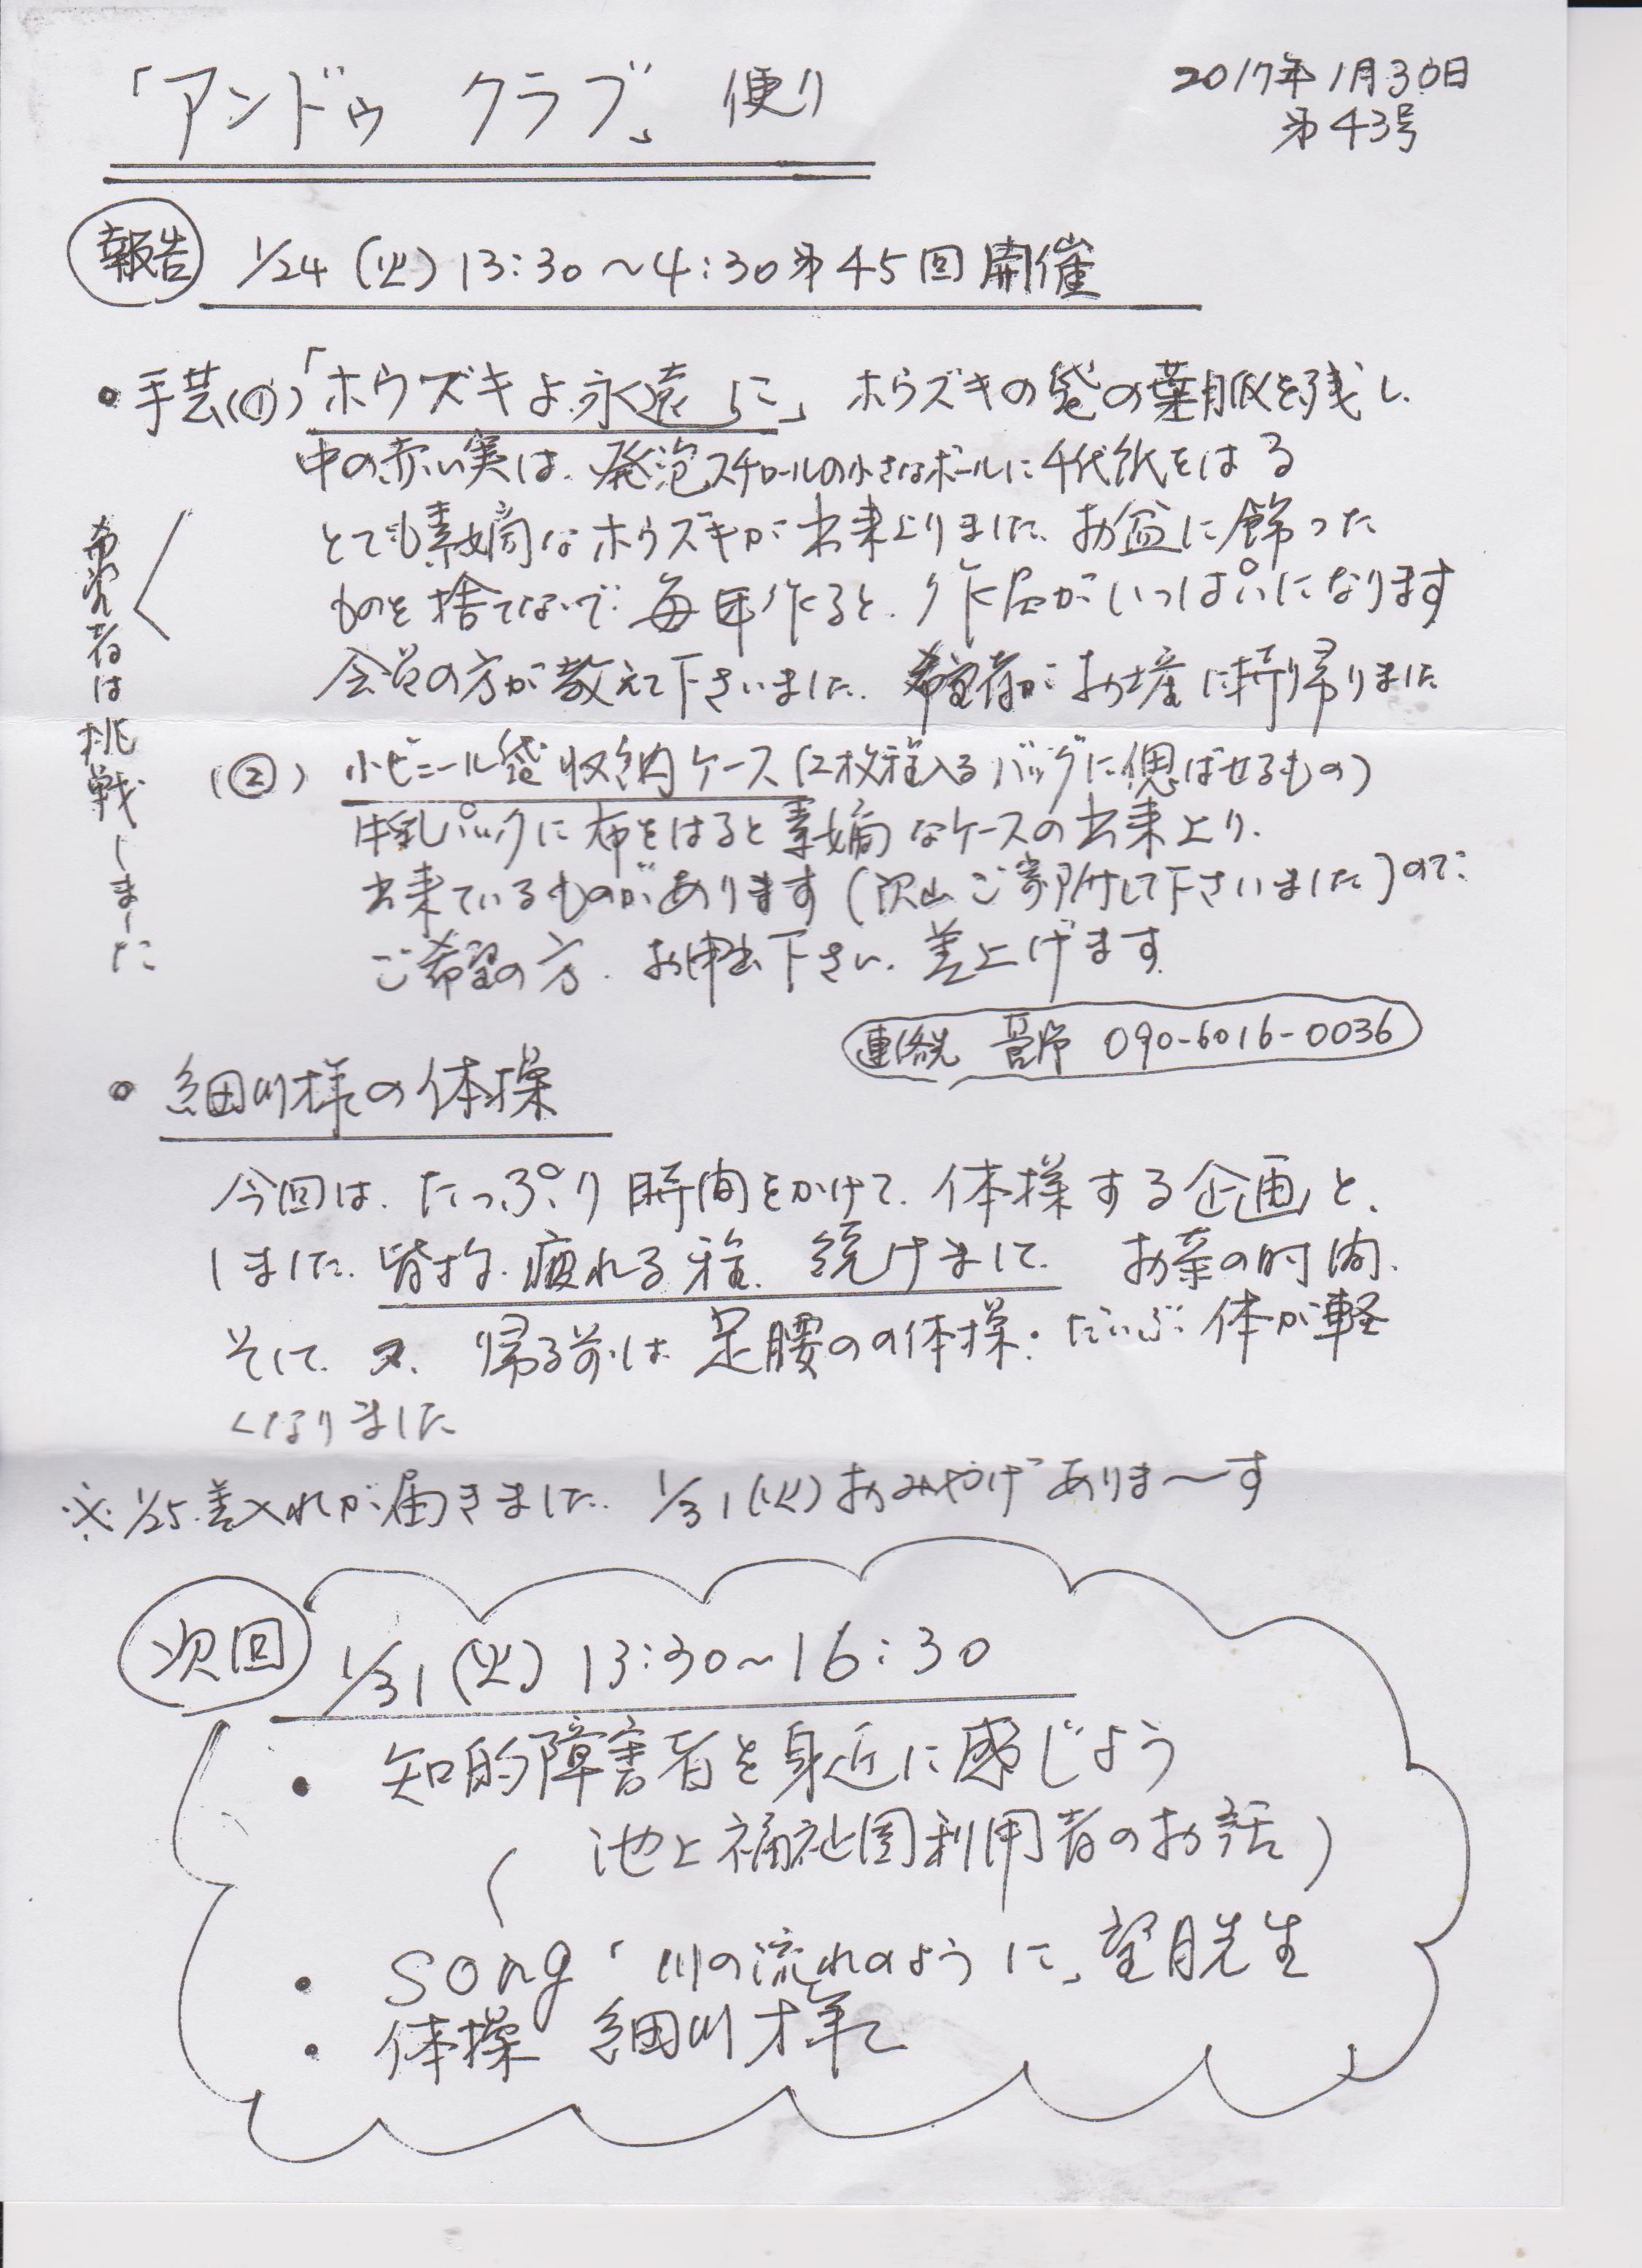 「アンドゥ クラブ」 便り
2017年1月30日
第43号
報告 1/24 (火) 13:30〜4:30 第45回開催
・手芸(①)「ホウズキよ永遠に」 ホウズキの袋の葉脈を残し、
中の赤い実は、発泡スチロールの小さなボールに千代紙をはる
とても素敵なホウズキが出来上りました。お盆に飾った
ものを捨てないで、毎年作ると、作品がいっぱいになります
会員の方が教えて下さいました。希望者がお土産に持り帰りました
希望者は挑戦しました
(②) 小ビニール袋収納ケース (2枚程入るバッグに偲ばせるもの)
牛乳パックに布をはると素敵なケースの出来上り、
出来ているものがあります (沢山ご寄附して下さいました) ので
ご希望の方、お申出下さい、差上げます
連絡先 菅野 090-6016-0036
・細川様の体操
今回は、たっぷり時間をかけて、体操する企画と、
しました。皆様、疲れる程、続けまして、お茶の時間、
そして、又、帰る前は足腰のの体操・だいぶ体が軽
くなりました
※ 1/25 差入れが届きました。1/31(火)おみやげありま〜す
次回 1/31 (火) 13:30〜16:30
・知的障害者を身近に感じよう
(池上福祉園利用者のお話)
・song「川の流れのように」望月先生
・体操 細川様